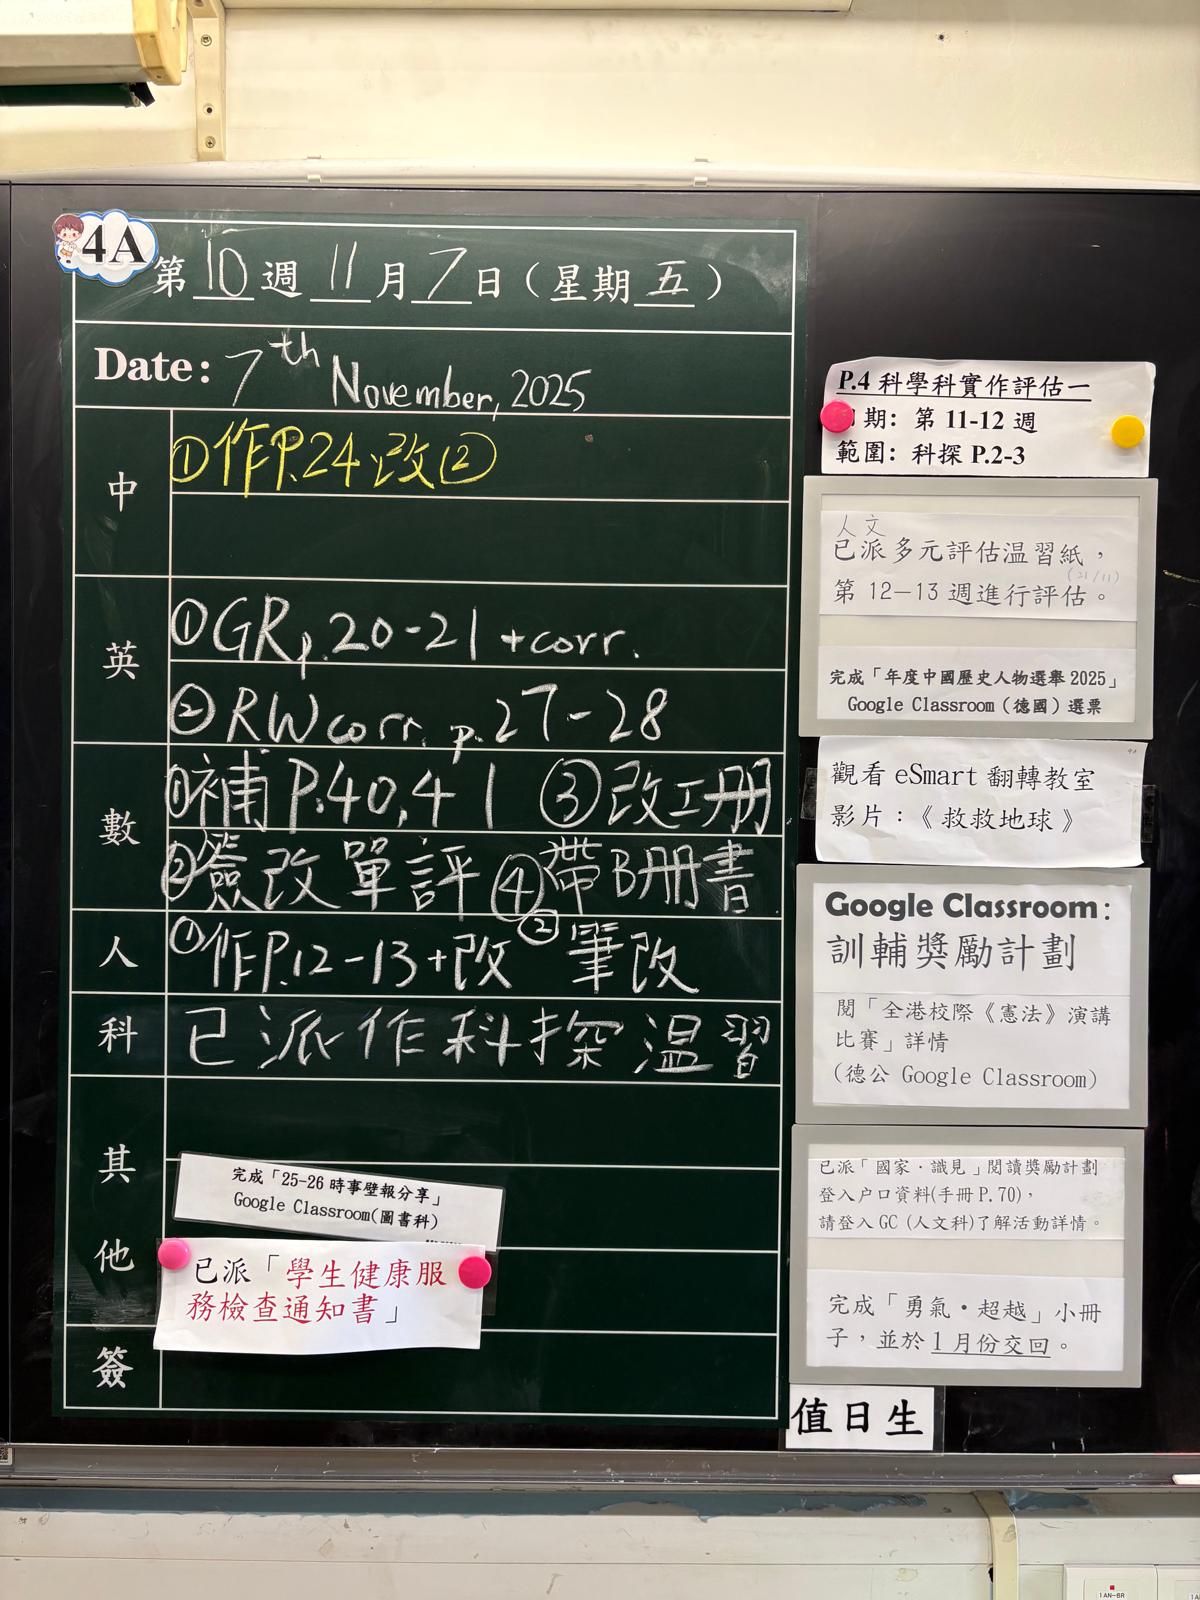 4A
第 10 週 11 月 7 日（星期 五 ）
Date: 7th November, 2025
中
①作P.24 改②
英
①GR p.20-21 +corr.
②RW corr. p.27-28
數
①補P.40,41 ③改工册
②簽改單評 ④帶B册書
人
①作P.12-13+改 ②筆改
科
已派作科探温習
其他
完成「25-26 時事壁報分享」
Google Classroom(圖書科)
已派「學生健康服
務檢查通知書」
簽
P.4 科學科實作評估一
期: 第 11-12 週
範圍: 科探 P.2-3
人文
已派多元評估温習紙，
(21/11)
第 12－13 週進行評估。
完成「年度中國歷史人物選舉 2025」
Google Classroom（德國）選票
觀看 eSmart 翻轉教室
影片：《救救地球》
Google Classroom:
訓輔獎勵計劃
閱「全港校際《憲法》演講
比賽」詳情
(德公 Google Classroom)
已派「國家·識見」閱讀獎勵計劃
登入户口資料(手冊 P.70)，
請登入 GC (人文科)了解活動詳情。
完成「勇氣·超越」小冊
子，並於 1 月份交回。
值日生
1AN-6R